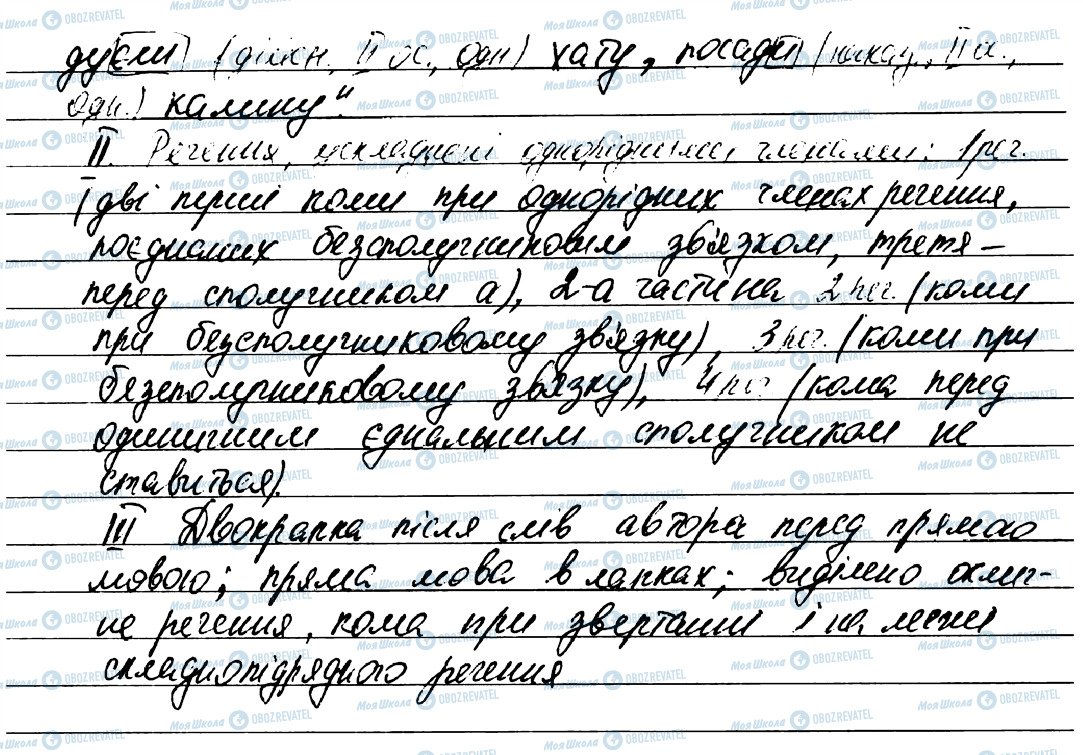 дуєш) (дійсн. II ос., одн) хату, посади (наказ., II ос.,
одн.) калину".
II. Речення, ускладнені однорідними членами: 1 реч.
(дві перші коми при однорідних членах речення,
поєднаних безсполучниковим зв'язком, третя –
перед сполучником а), 2-а частина 2 реч. (коми
при безсполучниковому зв'язку), 3 реч. (коми при
безсполучниковому зв'язку), 4 реч (кома перед
одиничним єднальним сполучником не
ставиться).
III Двокрапка після слів автора перед прямою
мовою; пряма мова в лапках; виділено оклич-
не речення, кома при звертанні і на межі
складнопідрядного речення